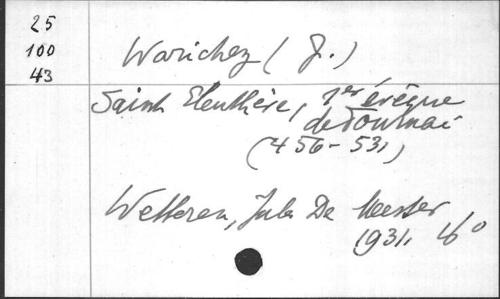 25
100
43
Warichez (J.)
Saint Eleuthère, 1er évêque
de Tournai
(456-531)
Wetteren, Jules De Meester
1931. 16°